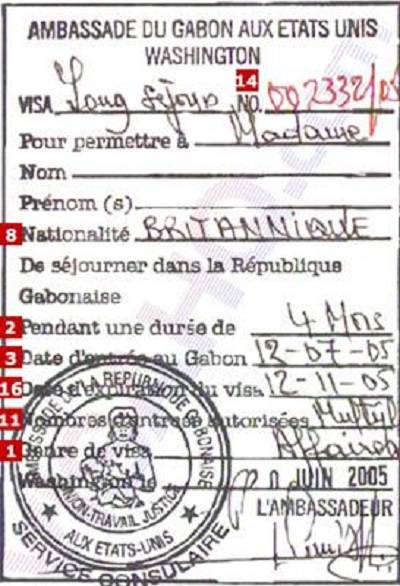 AMBASSADE DU GABON AUX ETATS UNIS
WASHINGTON
14
VISA Long Séjour NO. 002332/05
Pour permettre à Madame
Nom
Prénom (s)
8 Nationalité BRITANNIQUE
De séjourner dans la République
Gabonaise
2 Pendant une durée de 4 Mois
3 Date d'entrée au Gabon 12-07-05
16 Date d'expiration du visa 12-11-05
11 Nombres d'entrées autorisées Multipl
1 Genre de visa Affaires
Washington le JUIN 2005
L'AMBASSADEUR
AMBASSADE DE LA REPUBLIQUE GABONAISE
UNION-TRAVAIL JUSTICE
AUX ETATS-UNIS
SERVICE CONSULAIRE